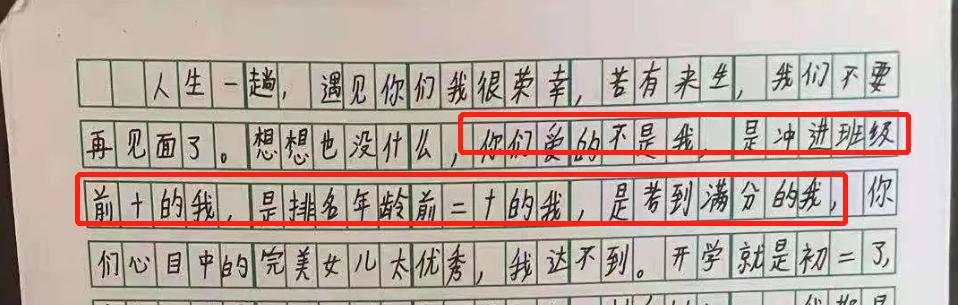 人生一趟，遇见你们我很荣幸，若有来生，我们不要
再见面了。想想也没什么，你们爱的不是我，是冲进班级
前十的我，是排名年龄前二十的我，是考到满分的我，你
们心目中的完美女儿太优秀，我达不到。开学就是初二了，